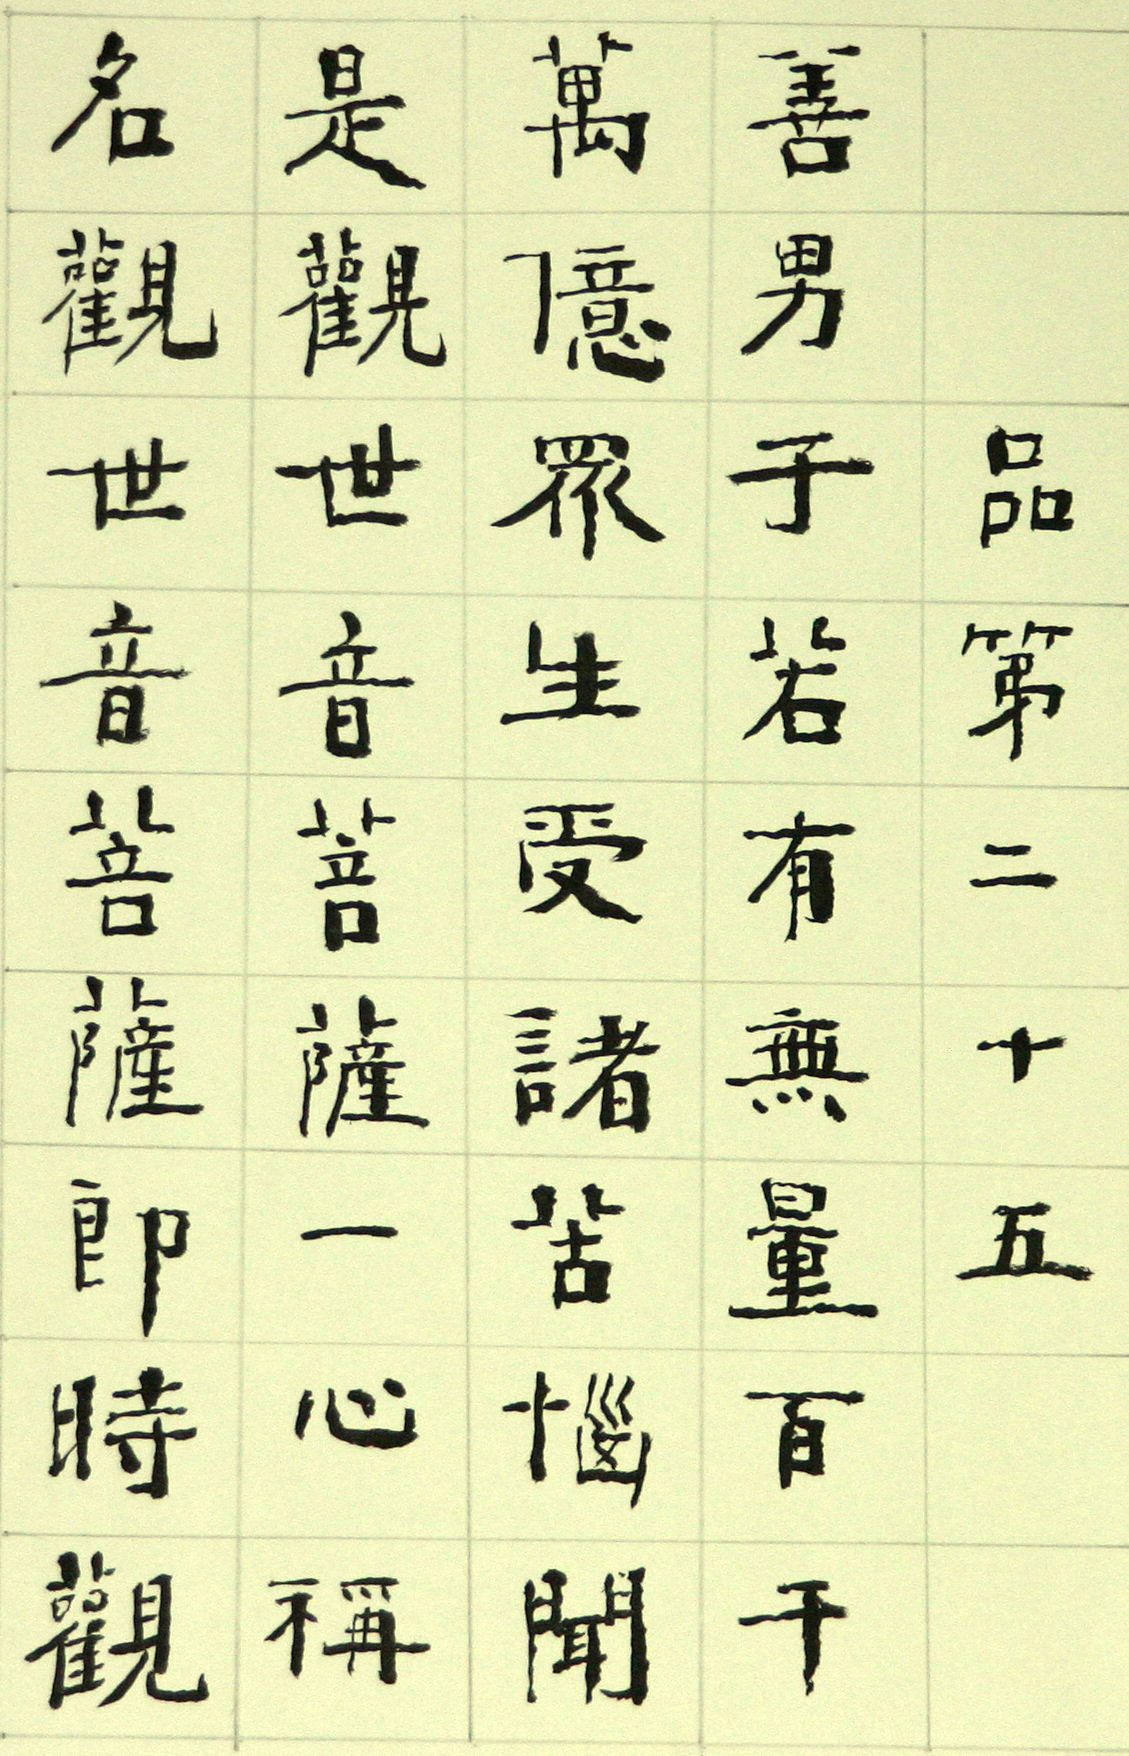 品第二十五
善男子若有無量百千
萬億眾生受諸苦惱聞
是觀世音菩薩一心稱
名觀世音菩薩即時觀